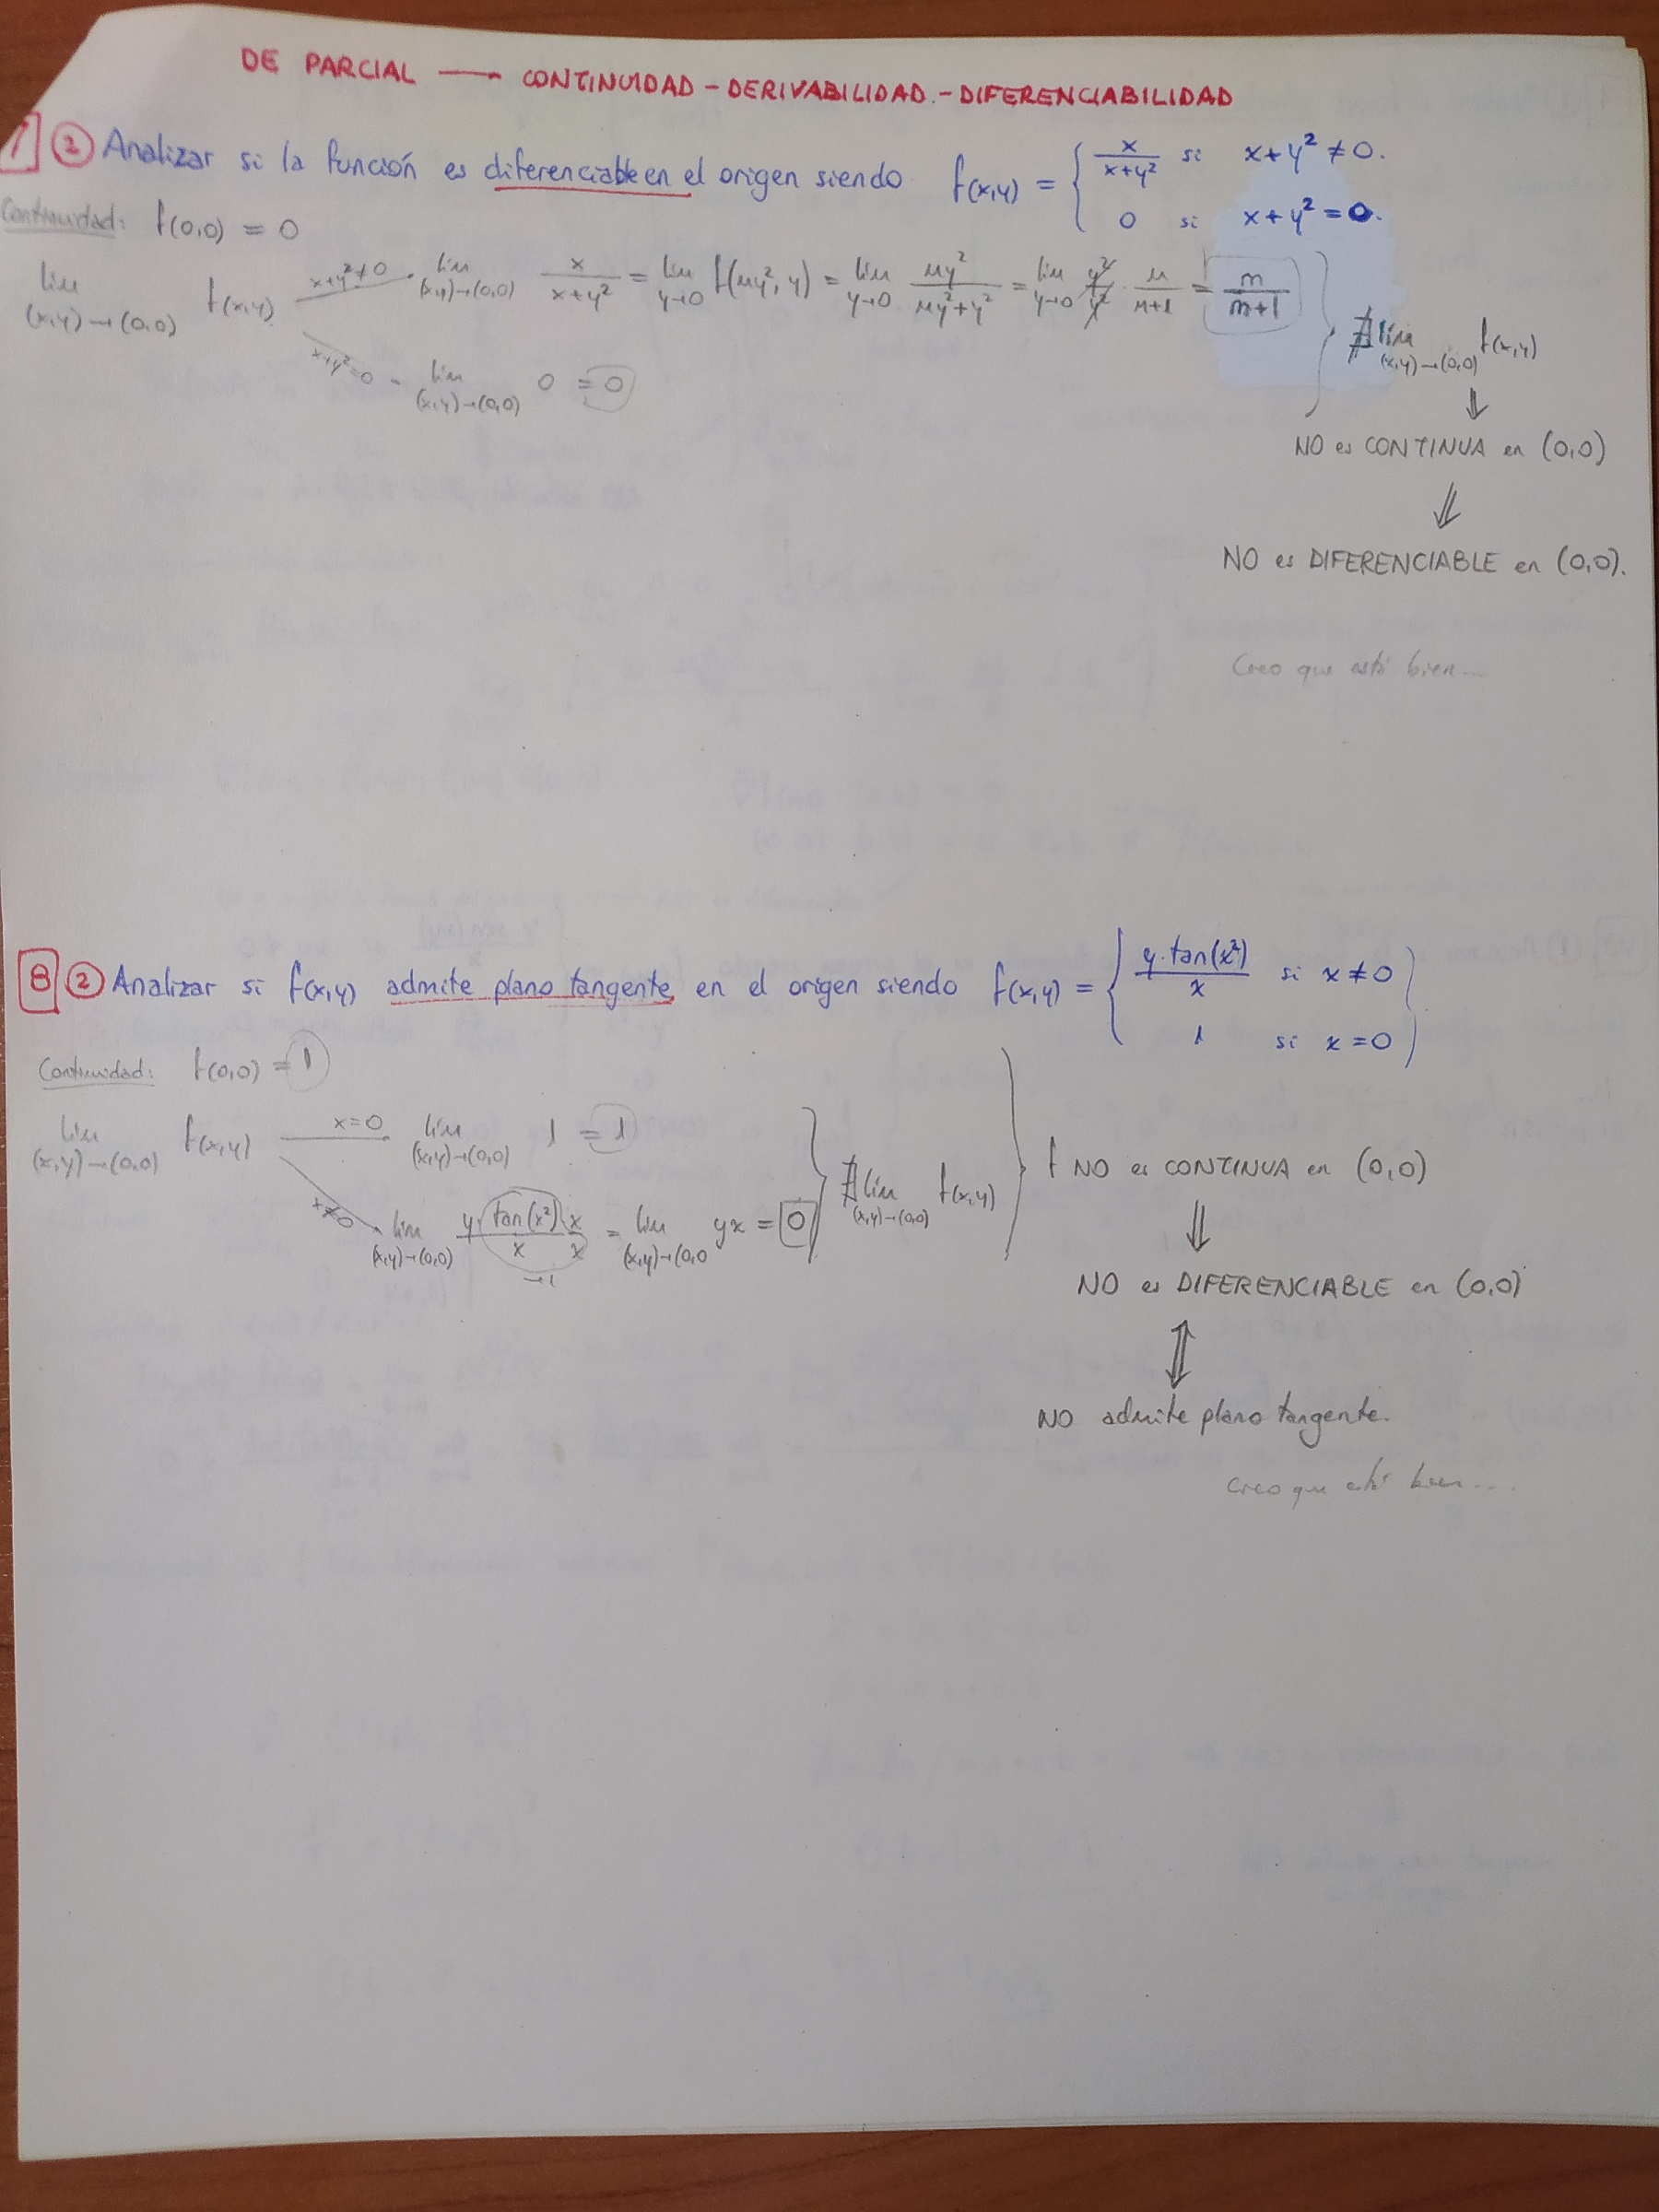 DE PARCIAL → CONTINUIDAD - DERIVABILIDAD - DIFERENCIABILIDAD
1 ② Analizar si la función es diferenciable en el origen siendo f(x,y) = { x/(x+y²) si x+y² ≠ 0.
0 si x+y² = 0.
Continuidad: f(0,0) = 0
lím (x,y)→(0,0) f(x,y) x+y²≠0 → lím (x,y)→(0,0) x/(x+y²) = lím y→0 f(my², y) = lím y→0 my²/(my²+y²) = lím y→0 y²/y² · m/(m+1) = m/(m+1)
x+y²=0 → lím (x,y)→(0,0) 0 = 0
∄ lím (x,y)→(0,0) f(x,y)
⇓
NO es CONTINUA en (0,0)
⇓
NO es DIFERENCIABLE en (0,0).
Creo que está bien...
8 ② Analizar si f(x,y) admite plano tangente en el origen siendo f(x,y) = { y·tan(x²)/x si x ≠ 0
1 si x = 0
Continuidad: f(0,0) = 1
lím (x,y)→(0,0) f(x,y) x=0 lím (x,y)→(0,0) 1 = 1
x≠0 → lím (x,y)→(0,0) y·tan(x²)/x · x/x = lím (x,y)→(0,0 yx = 0
→1
∄ lím (x,y)→(0,0) f(x,y)
f NO es CONTINUA en (0,0)
⇓
NO es DIFERENCIABLE en (0,0)
⇕
NO admite plano tangente.
Creo que está bien...